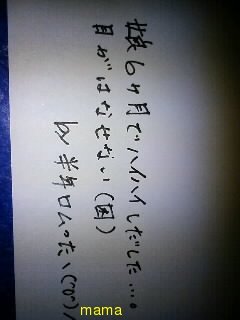 娘6ヶ月でハイハイしだした…。
目がはなせない(困)
by 半年ロムった\('0')/
mama